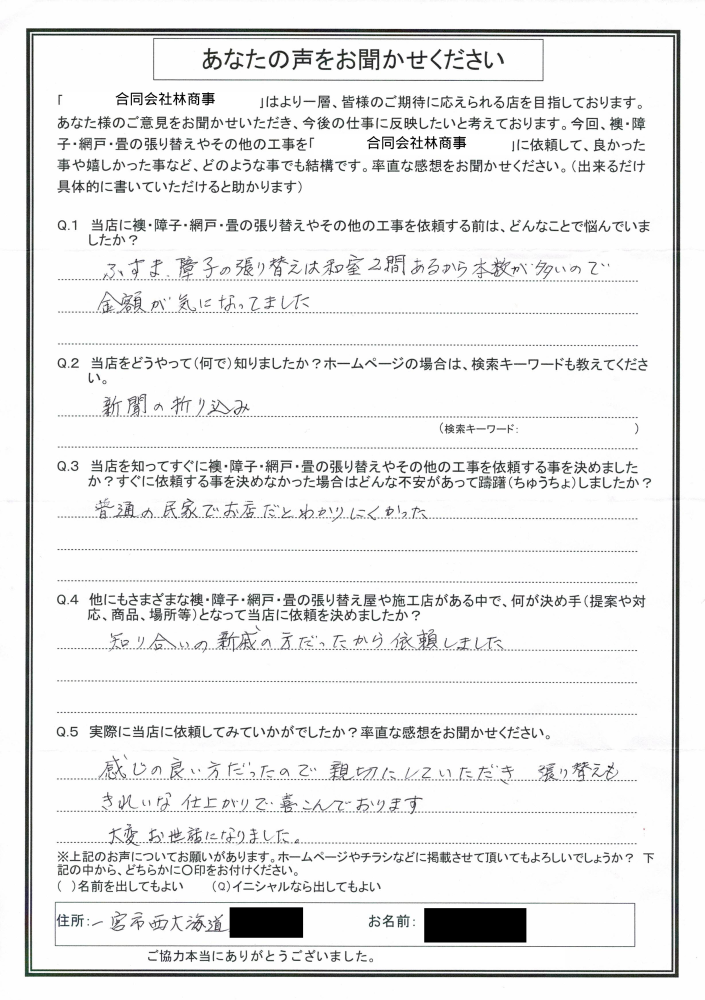 あなたの声をお聞かせください
「 合同会社林商事 」はより一層、皆様のご期待に応えられる店を目指しております。
あなた様のご意見をお聞かせいただき、今後の仕事に反映したいと考えております。今回、襖・障
子・網戸・畳の張り替えやその他の工事を「 合同会社林商事 」に依頼して、良かった
事や嬉しかった事など、どのような事でも結構です。率直な感想をお聞かせください。（出来るだけ
具体的に書いていただけると助かります）
Q.1 当店に襖・障子・網戸・畳の張り替えやその他の工事を依頼する前は、どんなことで悩んでいま
したか？
ふすま、障子の張り替えは和室2間あるから本数が多いので
金額が気になってました
Q.2 当店をどうやって（何で）知りましたか？ホームページの場合は、検索キーワードも教えてくださ
い。
新聞の折り込み
（検索キーワード： ）
Q.3 当店を知ってすぐに襖・障子・網戸・畳の張り替えやその他の工事を依頼する事を決めました
か？すぐに依頼する事を決めなかった場合はどんな不安があって躊躇（ちゅうちょ）しましたか？
普通の民家でお店だとわかりにくかった
Q.4 他にもさまざまな襖・障子・網戸・畳の張り替え屋や施工店がある中で、何が決め手（提案や対
応、商品、場所等）となって当店に依頼を決めましたか？
知り合いの新戚の方だったから依頼しました
Q.5 実際に当店に依頼してみていかがでしたか？率直な感想をお聞かせください。
感じの良い方だったので親切にしていただき 張り替えも
きれいな仕上がりで喜こんでおります
大変お世話になりました。
※上記のお声についてお願いがあります。ホームページやチラシなどに掲載させて頂いてもよろしいでしょうか？ 下
記の中から、どちらかに○印をお付けください。
（ ）名前を出してもよい （○）イニシャルなら出してもよい
住所：一宮市西大海道 お名前：
ご協力本当にありがとうございました。